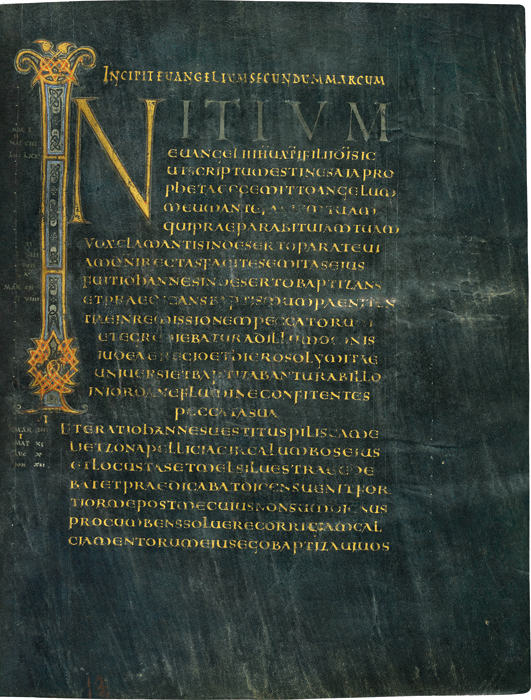 INCIPIT EUANGELIUM SECUNDUM MARCUM
INITIUM
EUANGELII IHU XPI FILII DI SIC
UT SCRIPTUM EST IN ESAIA PRO
PHETA ECCE MITTO ANGELUM
MEUM ANTE TUAM
QUI PRAEPARABIT UIAM TUAM
VOX CLAMANTIS IN DESERTO PARATE UI
AM DNI RECTAS FACITE SEMITAS EIUS
FUIT IOHANNES IN DESERTO BAPTIZANS
ET PRAEDICANS BAPTISMUM PAENITEN
TIAE IN REMISSIONEM PECCATORU
ET EGREDIEBATUR AD ILLUM OMNIS
IUDEAE REGIO ET HIEROSOLYMITAE
UNIUERSI ET BAPTIZABANTUR AB ILLO
IN IORDANE FLUMINE CONFITENTES
PECCATA SUA
ET ERAT IOHANNES UESTITUS PILIS CAME
LI ET ZONA PELLICIA CIRCA LUMBOS EIUS
ET LOCUSTAS ET MEL SILUESTRAE EDE
BAT ET PRAEDICABAT DICENS UENIT FOR
TIOR ME POST ME CUIUS NON SUM DIGNUS
PROCUMBENS SOLUERE CORRIGIAM CAL
CIAMENTORUM EIUS EGO BAPTIZAUI UOS